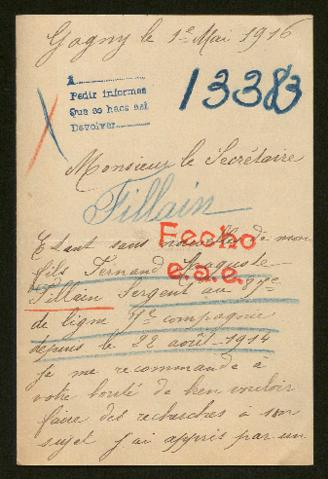 Gagny le 1e Mai 1916
A
Pedir informes
Que se hace asi
Devolver
13383
Monsieur le Secrétaire
Tillain
Fecho
c.a.e.
Etant sans nouvelles de mon
fils Fernand Auguste
Tillain Sergent au 37e
de ligne 11e compagnie
depuis le 22 août 1914
je me recommande à
votre bonté de bien vouloir
faire des recherches à son
sujet j'ai appris par un